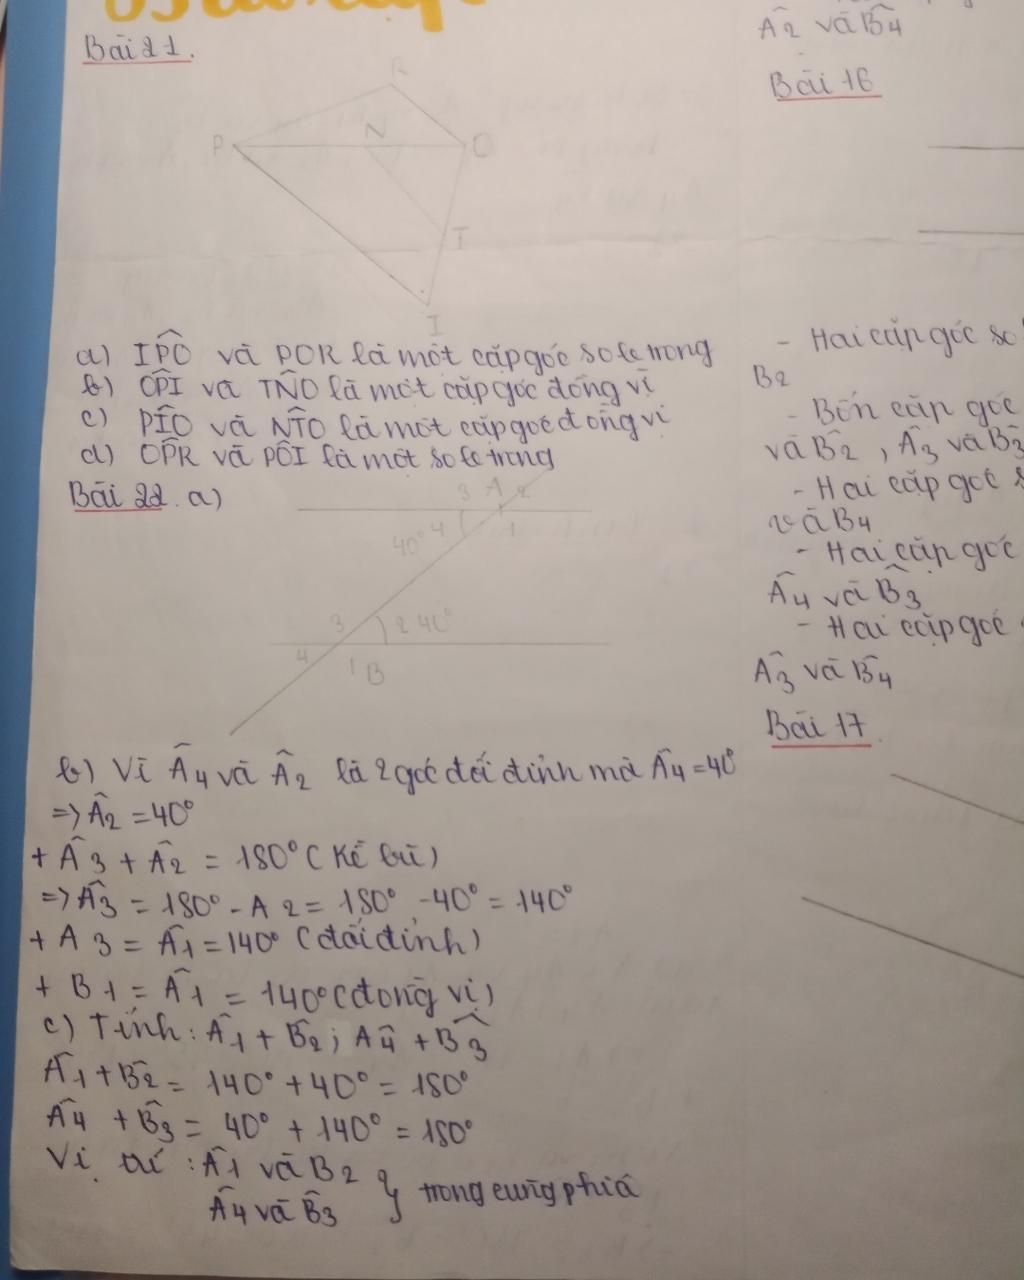 Bài 21.
R
P
N
O
T
I
a) IPÔ và POR là một cặp góc so le trong
b) OPI và TNO là một cặp góc đồng vị
c) PIO và NTO là một cặp góc đồng vị
d) OPR và POI là một so le trong
Bài 22. a)
3 A 2
40° 4 1
3 2 40°
4 1 B
b) Vì Â4 và Â2 là 2 góc đối đỉnh mà Â4 = 40°
=> Â2 = 40°
+ Â3 + Â2 = 180° (Kề bù)
=> Â3 = 180° - A2 = 180° - 40° = 140°
+ A3 = Â1 = 140° (đối đỉnh)
+ B1 = Â1 = 140° (đồng vị)
c) Tính: Â1 + B̂2; Â4 + B̂3
Â1 + B̂2 = 140° + 40° = 180°
Â4 + B̂3 = 40° + 140° = 180°
Vị trí: Â1 và B2
Â4 và B̂3 } trong cùng phía
Â2 và B̂4
Bài 16
- Hai cặp góc so
B2
- Bốn cặp góc
và B̂2, Â3 và B̂3
- Hai cặp góc s
và B4
- Hai cặp góc
Â4 và B̂3
- Hai cặp góc
Â3 và B̂4
Bài 17